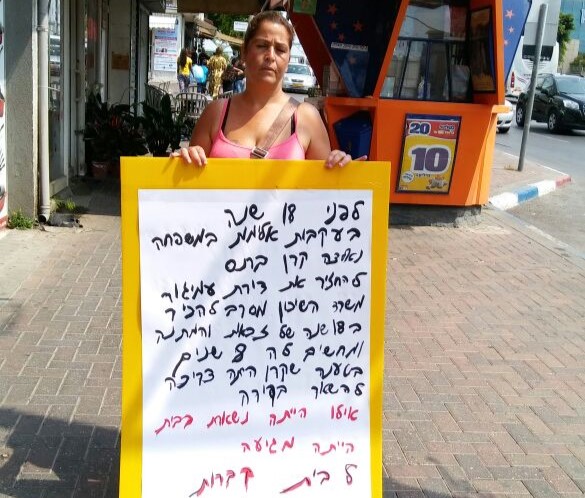 לפני 18 שנה
בעקבות אלימות במשפחה
נאלצה קרן בתס
להחזיר את דירת עמיגור
משרד השיכון מסרב להכיר
ב 18 שנה של זכאות והמתנה
ומחשיבים לה 8 שנים
בטענה שקרן היתה צריכה
להשאר בדירה
אילו הייתה נשארת בבית
הייתה מגיעה
לבית קברות
20
10